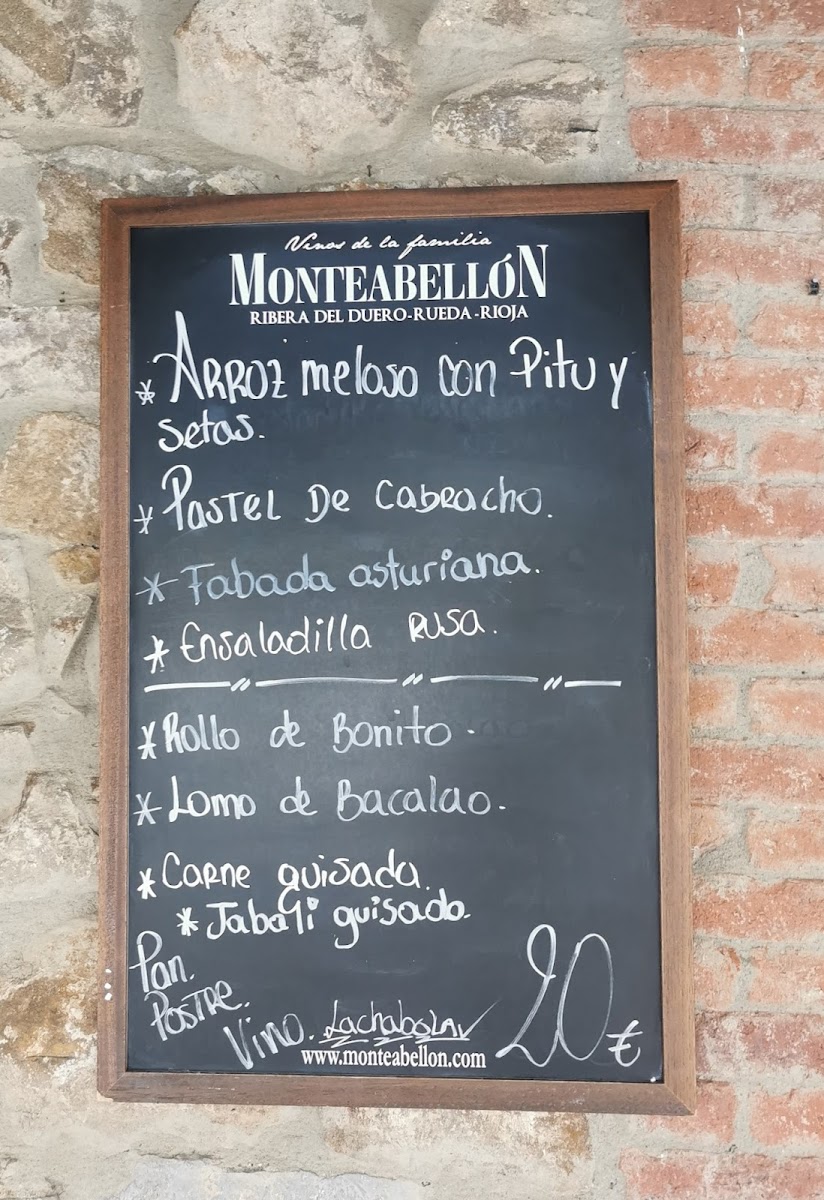 Vinos de la familia
MONTEABELLÓN
RIBERA DEL DUERO-RUEDA-RIOJA
* ARROZ meloso con Pitu y
setas.
* PASTEL De CabRacho.
* Fabada asturiana.
* Ensaladilla RUSA.
* Rollo de Bonito.
* Lomo de Bacalao.
* CARNE guisada.
* Jabalí guisado.
Pan.
POSTRE.
Vino.
20€
www.monteabellon.com